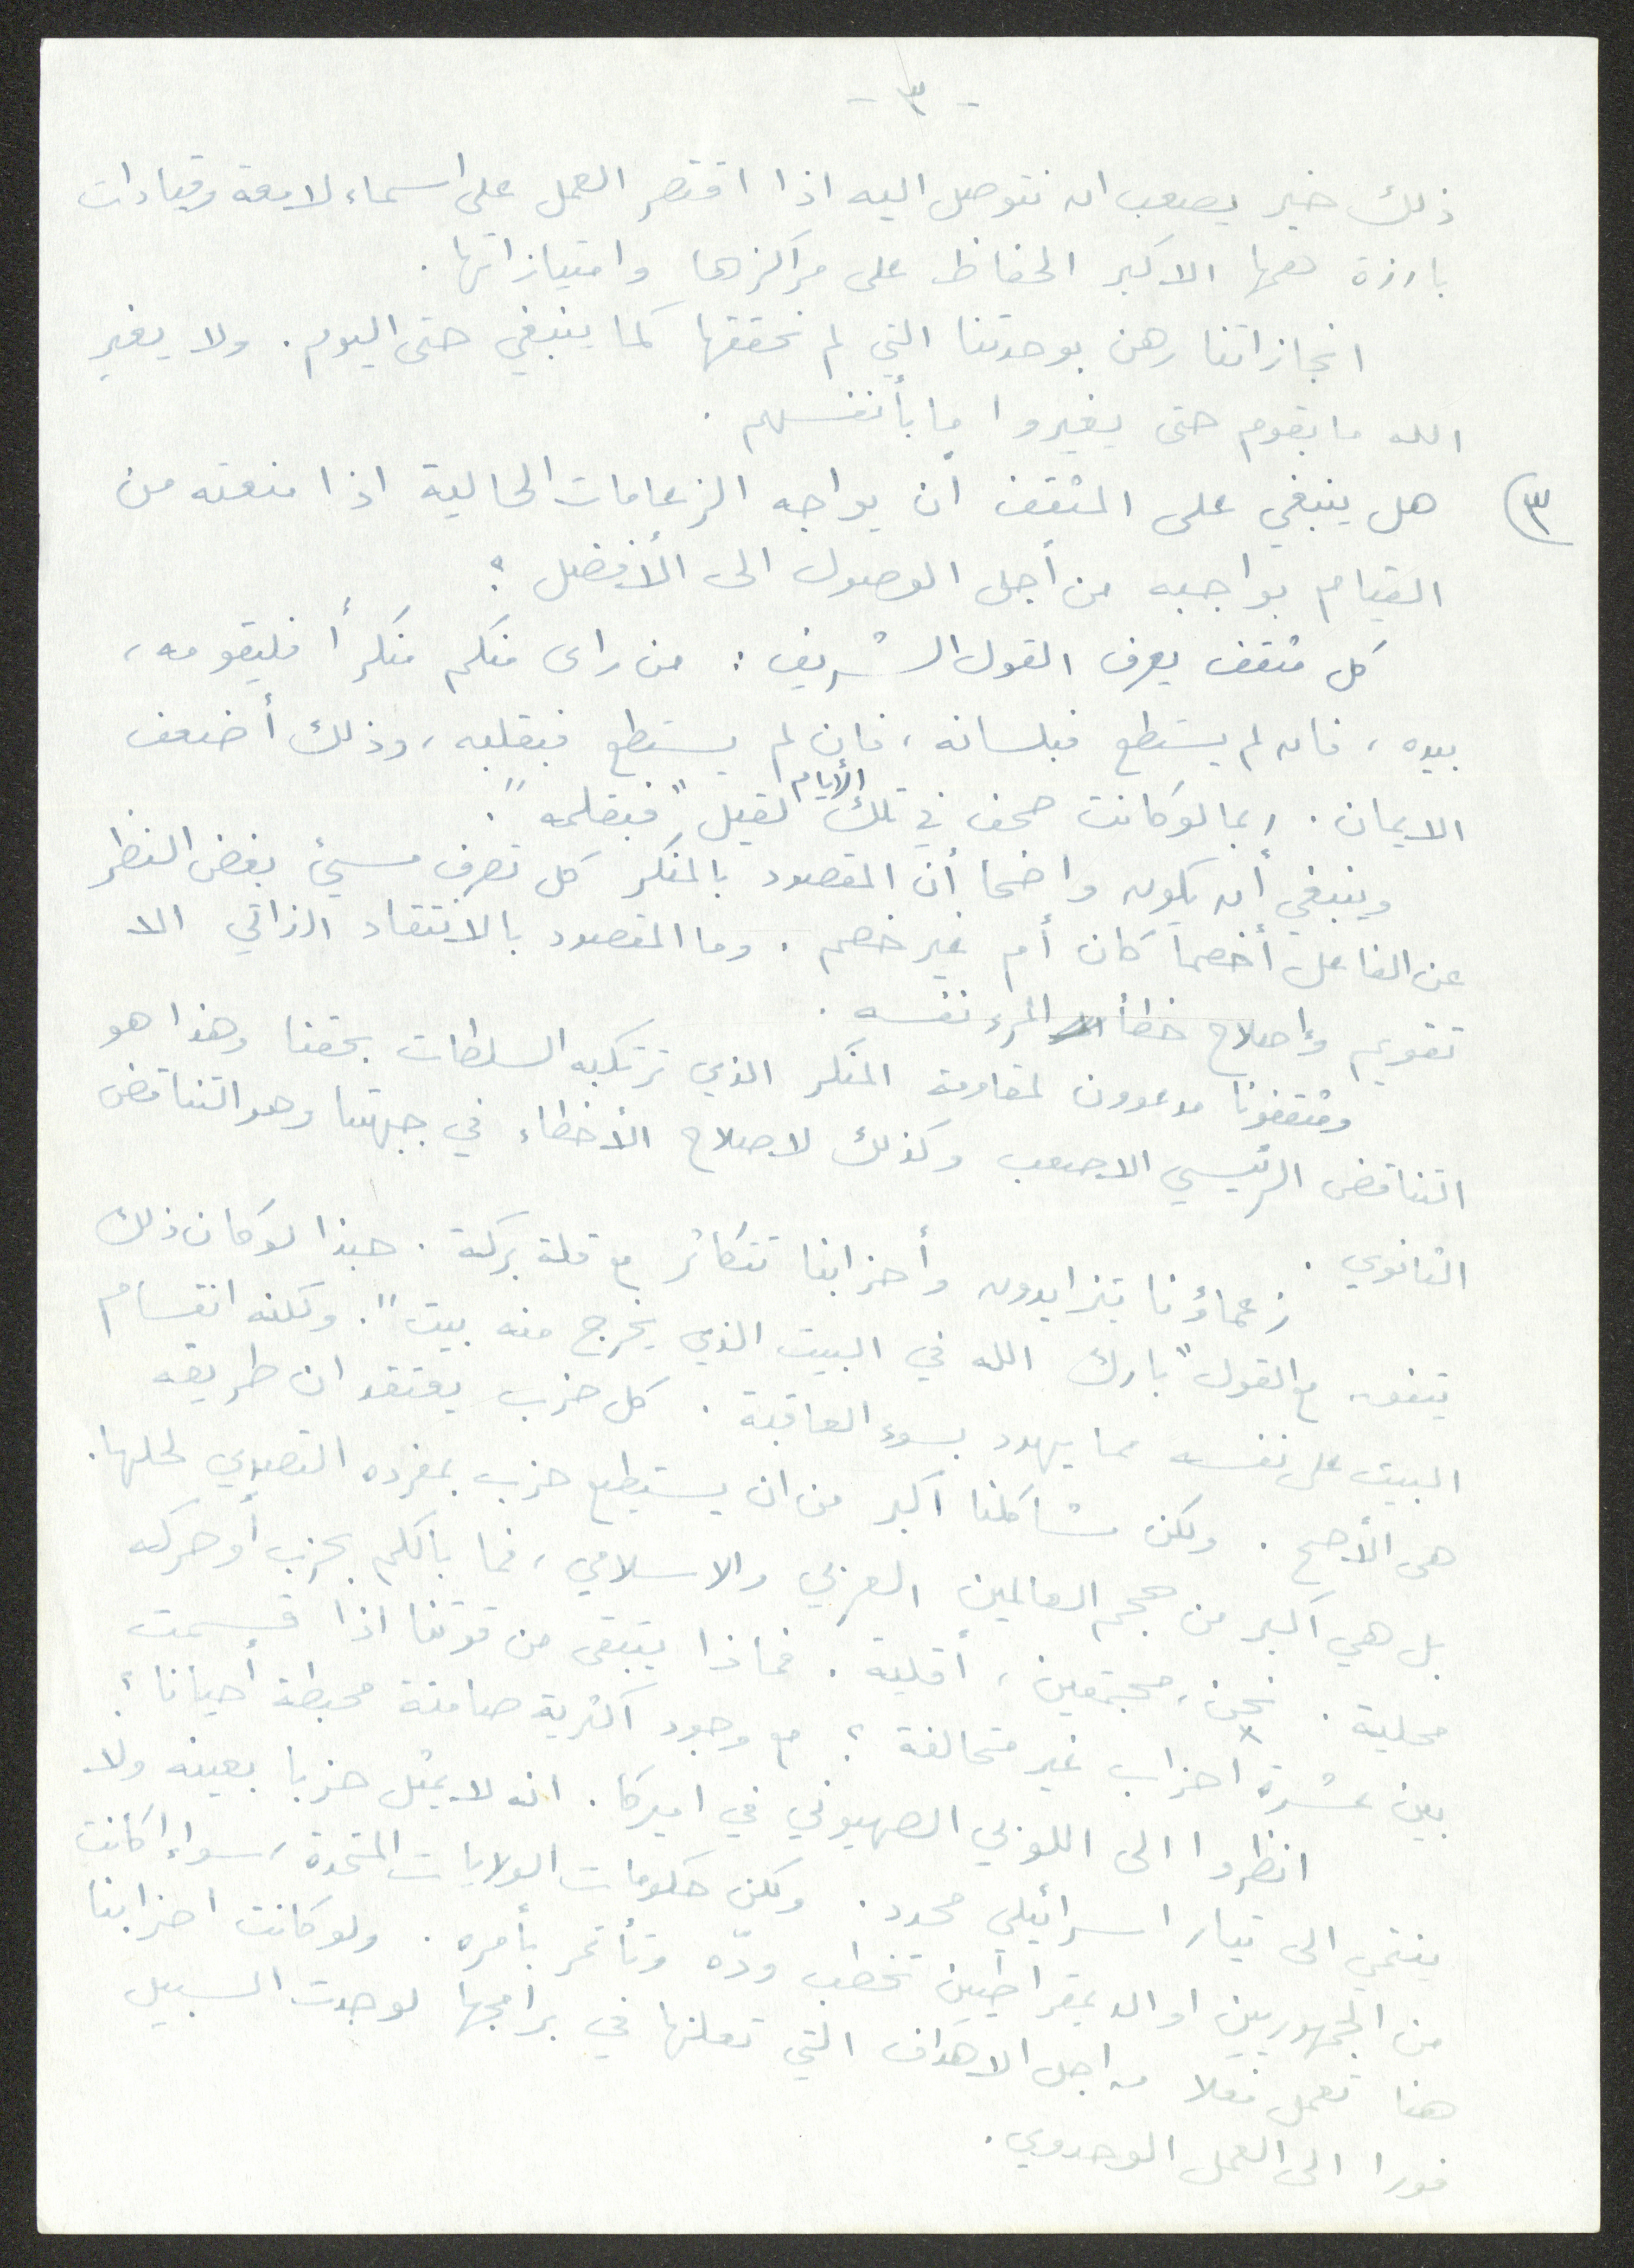 - ٣ -
ذلك خير يصعب ان نتوصل اليه اذا اقتصر العمل على اسماء لامعة وقيادات
بارزة همها الاكبر الحفاظ على مراكزها وامتيازاتها .
انجازاتنا رهن بوحدتنا التي لم نحققها كما ينبغي حتى اليوم . ولا يغير
الله ما بقوم حتى يغيروا ما بأنفسهم .
٣) هل ينبغي على المثقف أن يواجه الزعامات الحالية اذا منعته من
القيام بواجبه من أجل الوصول الى الأفضل ؟
كل مثقف يعرف القول الشريف : من راى منكم منكراً فليقومه ،
بيده ، فان لم يستطع فبلسانه ، فان لم يستطع فبقلبه ، وذلك أضعف
الايمان . ربما لو كانت صحف في تلك الأيام لقيل "فبقلمه" .
وينبغي أن يكون واضحا أن المقصود بالمنكر كل تصرف مسيئ بغض النظر
عن الفاعل أخصماً كان أم غير خصم . وما المقصود بالانتقاد الذاتي الا
تقويم وإصلاح خطأ المرء نفسه .
ومثقفونا مدعوون لمقاومة المنكر الذي ترتكبه السلطات بحقنا وهذا هو
التناقض الرئيسي الاصعب وكذلك لاصلاح الأخطاء في جبهتنا وهو التناقض
الثانوي .
زعماؤنا يتزايدون وأحزابنا تتكاثر مع قلة بركة . حبذا لو كان ذلك
يتفق مع القول "بارك الله في البيت الذي يخرج منه بيت" . ولكنه انقسام
البيت على نفسه مما يهدد بسوء العاقبة . كل حزب يعتقد ان طريقه
هي الأصح . ولكن مشاكلنا أكبر من ان يستطيع حزب بمفرده التصدي لحلها .
بل هي أكبر من حجم العالمين العربي والاسلامي ، فما بالكم بحزب أو حركة
محلية . نحن ، مجتمعين ، أقلية . فماذا يتبقى من قوتنا اذا قسمت
بين عشرة احزاب غير متحالفة ؟ مع وجود اكثرية صامتة محبطة أحيانا ؟
انظروا الى اللوبي الصهيوني في اميركا . انه لا يمثل حزبا بعينه ولا
ينتمي الى تيار اسرائيلي محدد . ولكن حكومات الولايات المتحدة ، سواء أكانت
من الجمهوريين او الديمقراطيين تخطب ودّه وتأتمر بأمره . ولو كانت احزابنا
هنا تعمل فعلا من اجل الاهداف التي تعلنها في برامجها لوجدت السبيل
فورا الى العمل الوحدوي .